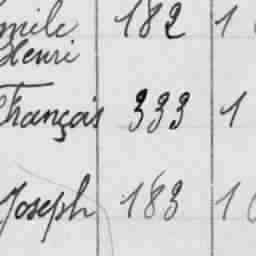 mile 182 1
Henri
François 333 1
Joseph 183 1